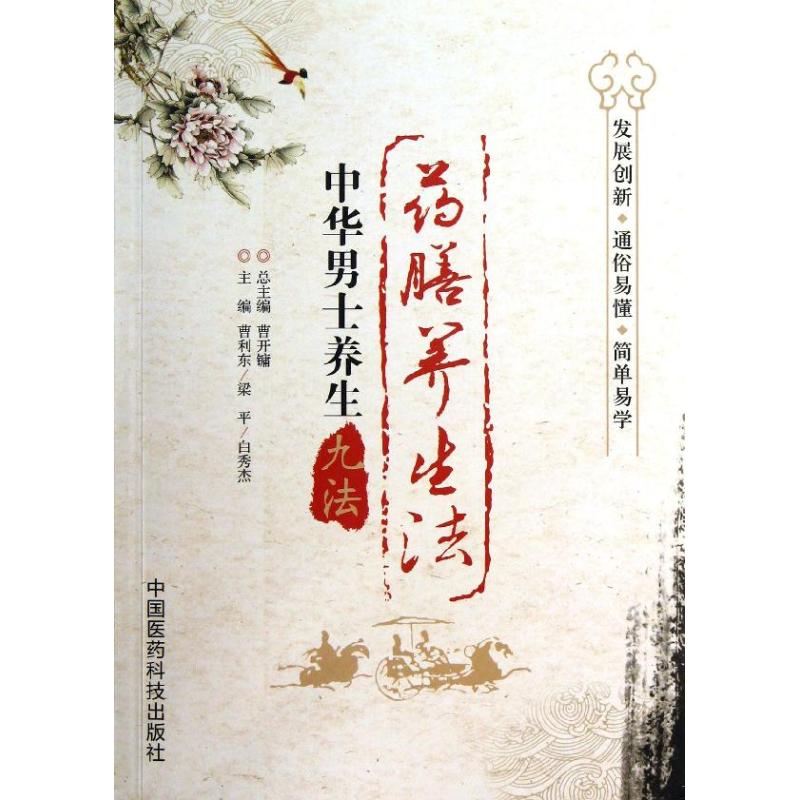 发展创新·通俗易懂·简单易学
药膳养生法
中华男士养生九法
◎总主编 曹开镛
◎主 编 曹利东/梁 平/白秀杰
中国医药科技出版社